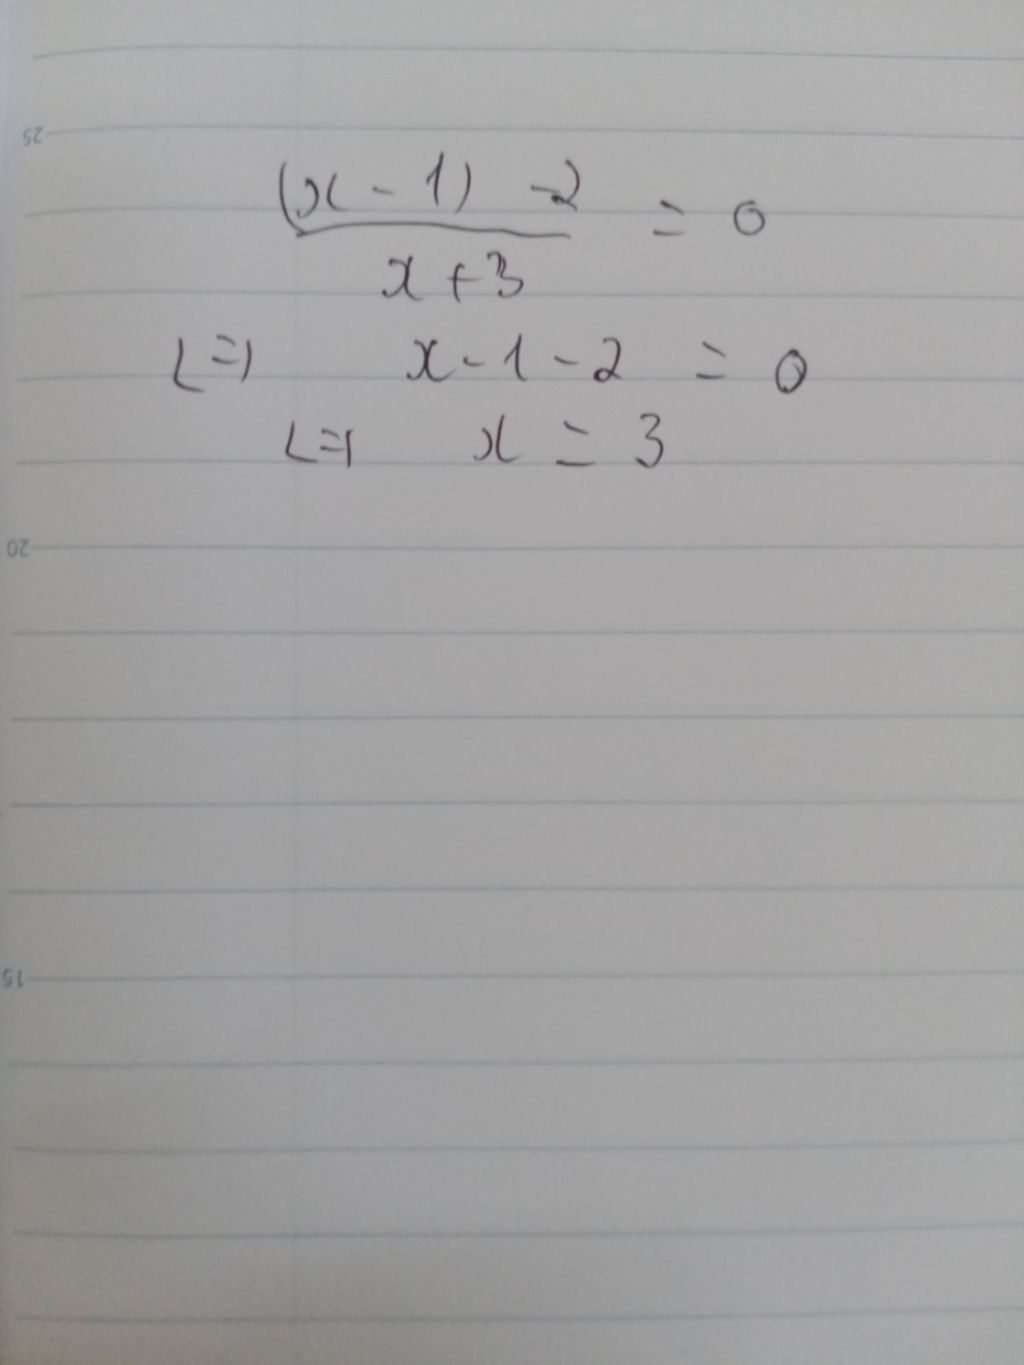 25
(x - 1) - 2
x + 3
= 0
<=> x - 1 - 2 = 0
<=> x = 3
20
15